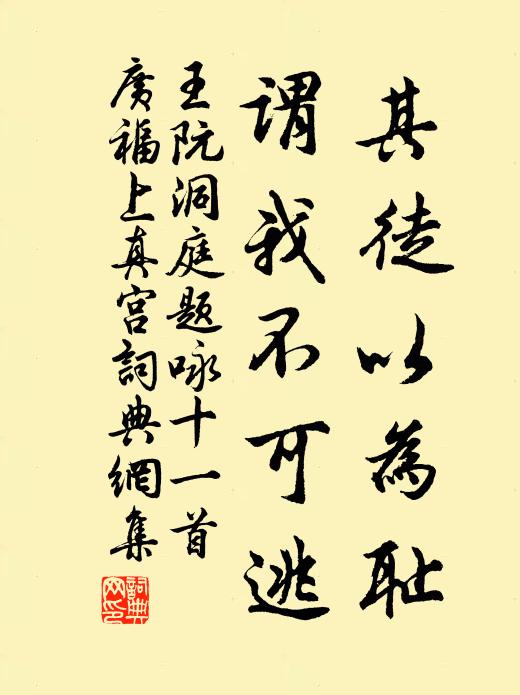 其徒以為耻
謂我不可逃
王阮洞庭題咏十一首
廣福上真宮詞典網集
詞典网印